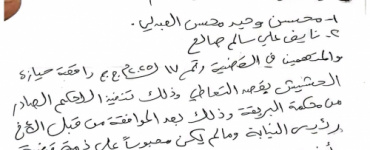 ١- محسن وحيد محسن العبدلي.
٢- نايف علي سالم صالح
والمتهمين في القضية رقم ١٧ لسنة ٢٠٢٥م ج.ج رافقت حيازة
الحشيش بقصد التعاطي وذلك تنفيذ للحكم الصادر
من محكمة البريقة وذلك بعد الموافقة من قبل الأخ
رئيس النيابة ومالم يكن محبوساً على ذمة قضية